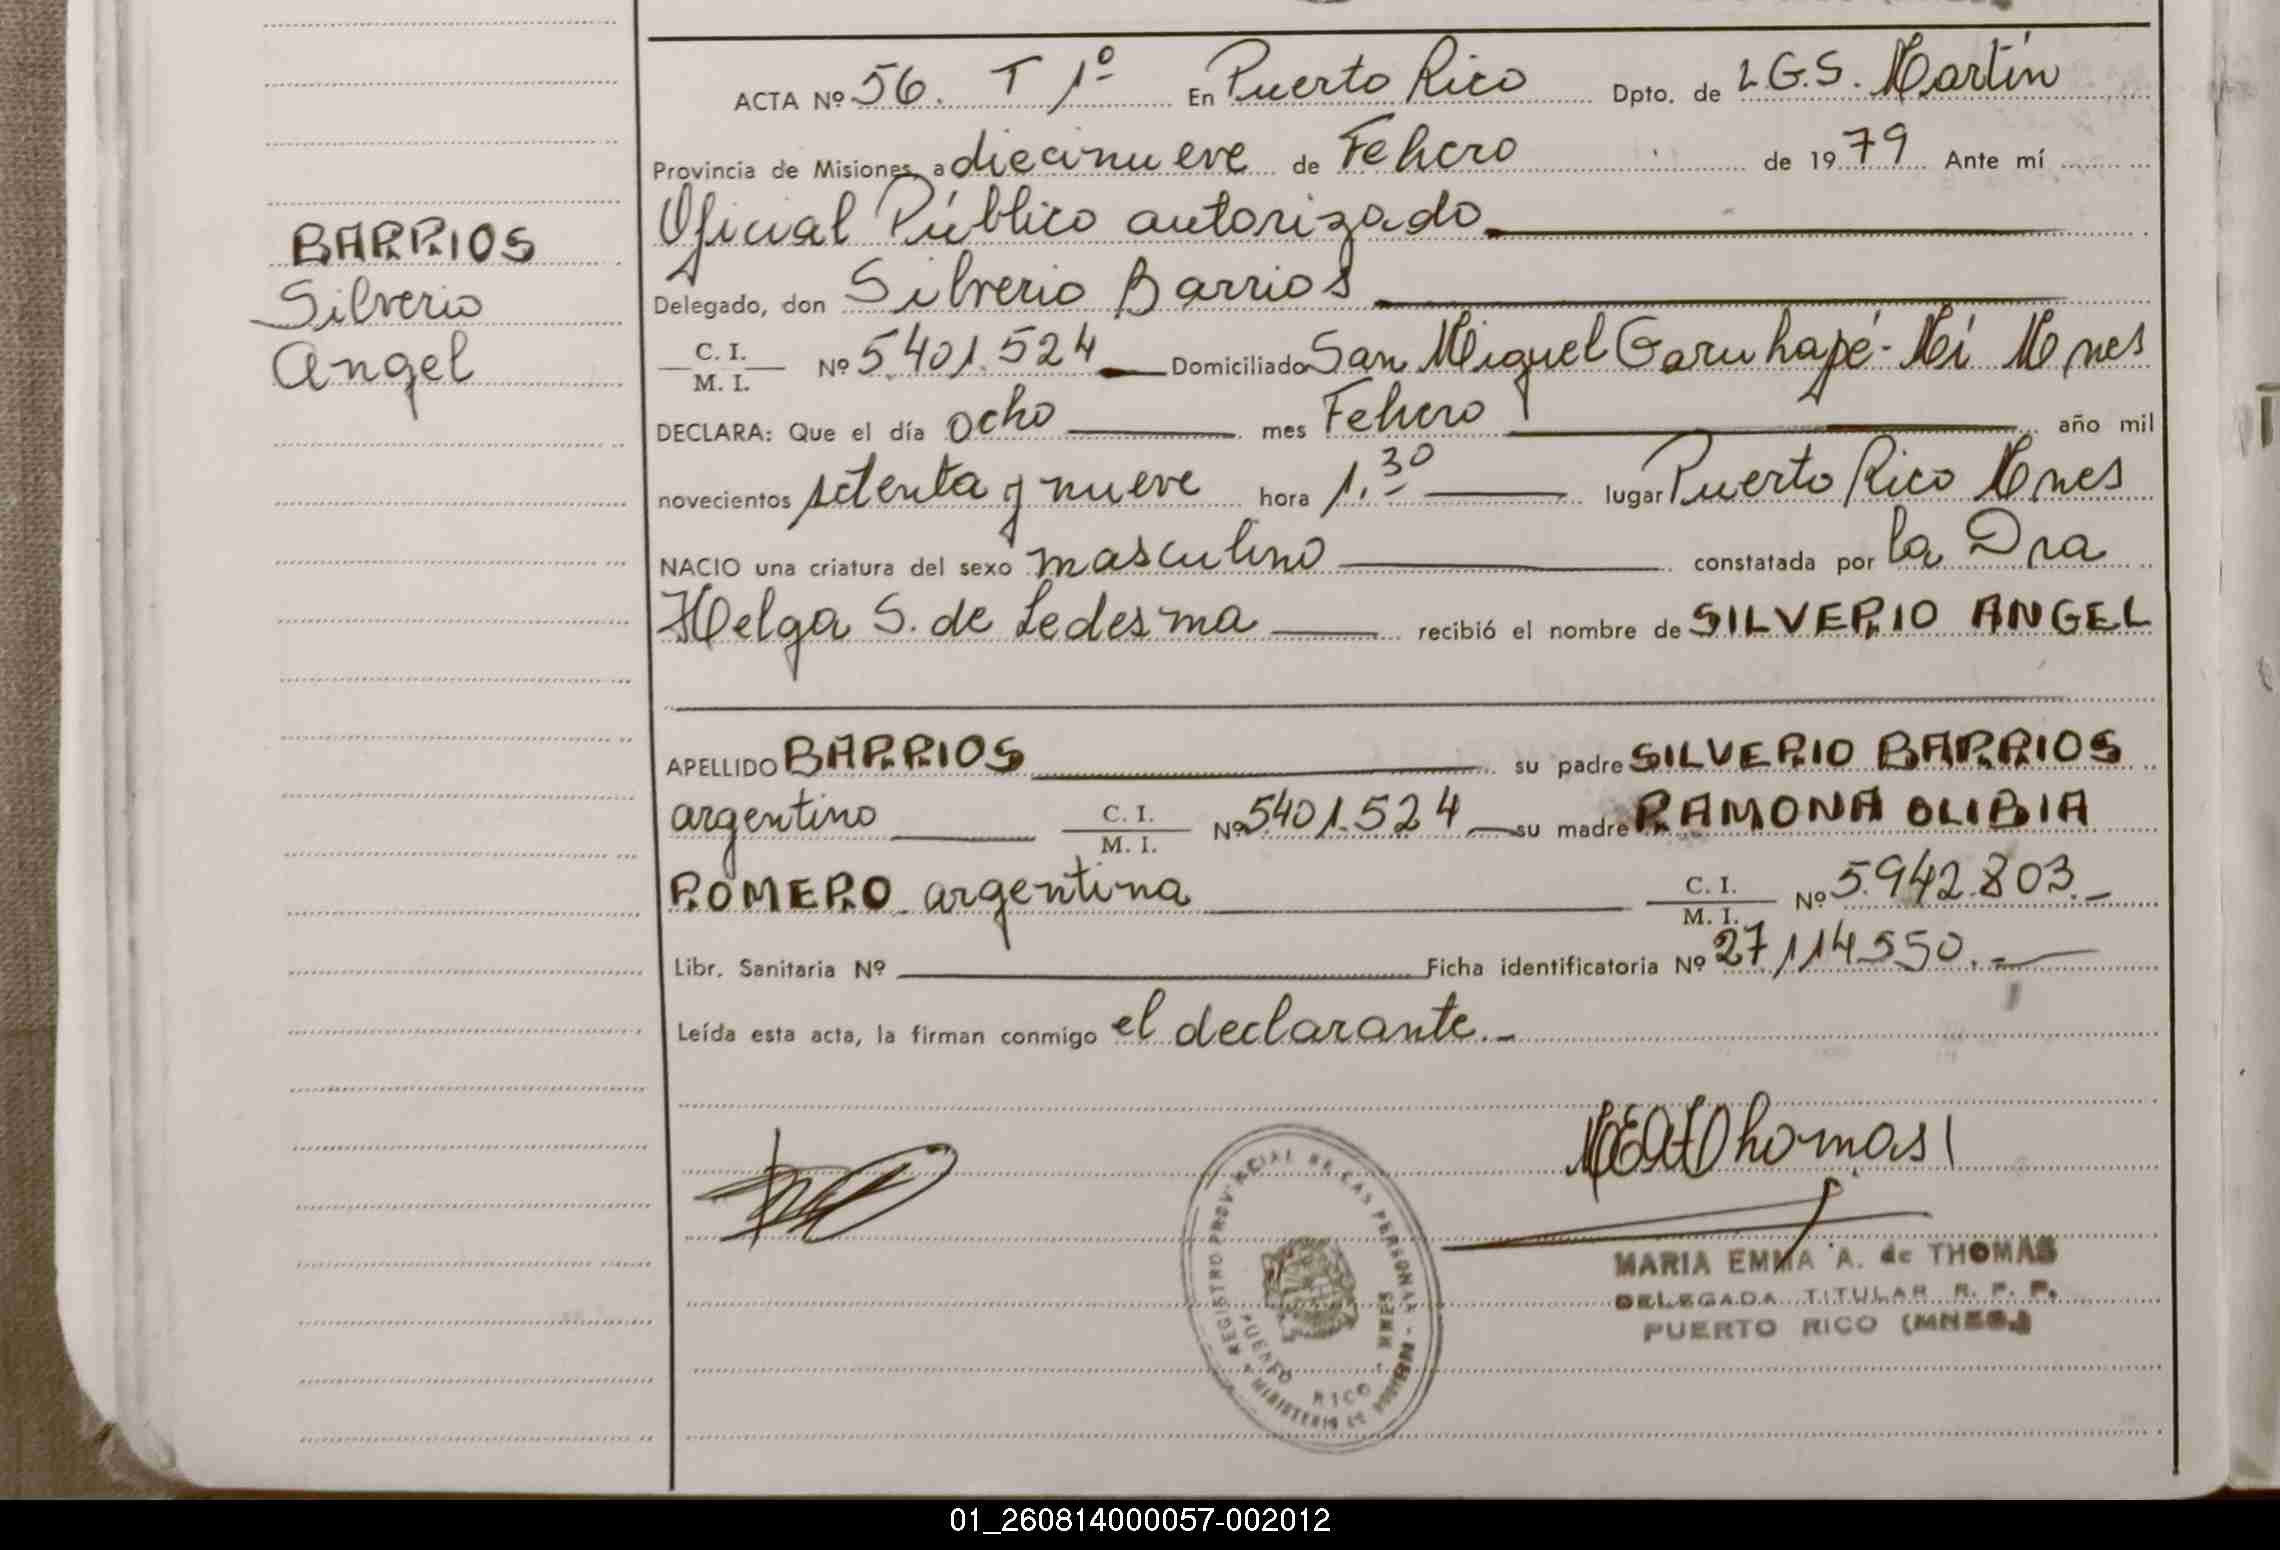 BARRIOS
Silverio
Angel
ACTA Nº 56. T 1º En Puerto Rico Dpto. de L.G.S. Martín
Provincia de Misiones, a diecinueve de Febrero de 1979 Ante mí
Oficial Público autorizado
Delegado, don Silverio Barrios
C. I.
M. I. Nº 5.401.524 Domiciliado San Miguel Garuhapé-Mí Mnes
DECLARA: Que el día ocho mes Febrero año mil
novecientos setenta y nueve hora 1.30 lugar Puerto Rico Mnes
NACIO una criatura del sexo masculino constatada por la Dra
Helga S. de Ledesma recibió el nombre de SILVERIO ANGEL
APELLIDO BARRIOS su padre SILVERIO BARRIOS
argentino C. I. M. I. Nº 5.401.524 su madre RAMONA OLIBIA
ROMERO argentina C. I. M. I. Nº 5.942.803.-
Libr. Sanitaria Nº Ficha identificatoria Nº 27.114.550.-
Leída esta acta, la firman conmigo el declarante.-
REGISTRO PROVINCIAL DE LAS PERSONAS - MINISTERIO DE GOBIERNO
PUERTO RICO MNES
MARIA EMMA A. de THOMAS
DELEGADA TITULAR R. P. P.
PUERTO RICO (MNES.)
01_260814000057-002012